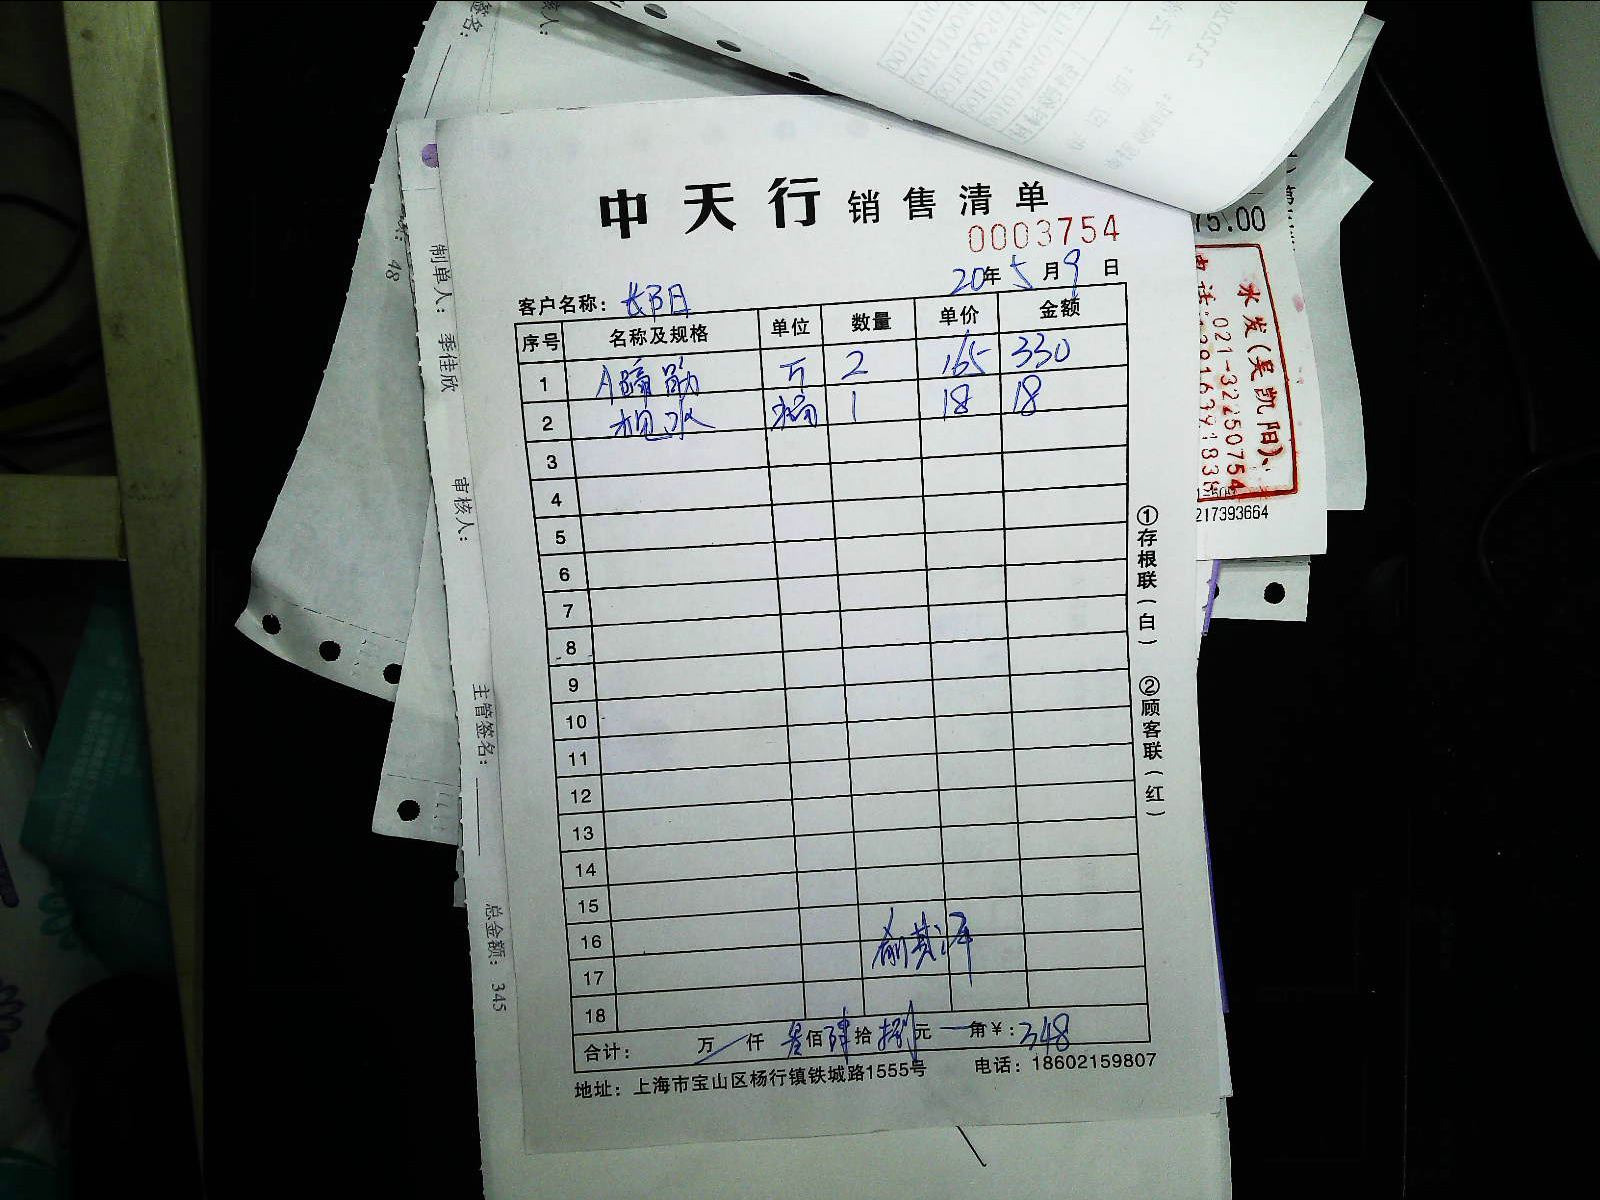 中天行 销售清单
0003754
20年5月9日
客户名称：长阳
序号 名称及规格 单位 数量 单价 金额
1 A蹄筋 2 165 330
2 水 1 18 18
3
4
5
6
7
8
9
10
11
12
13
14
15
16
17
18
合计： 万 仟 佰肆拾捌元 角￥:348
地址：上海市宝山区杨行镇铁城路1555号 电话：18602159807
①存根联（白） ②顾客联（红）
制单人：季佳欣 审核人： 主管签名： 总金额：345
签名：
核人：
48
75.00
水发(吴凯阳)、
021-32250754
217393664